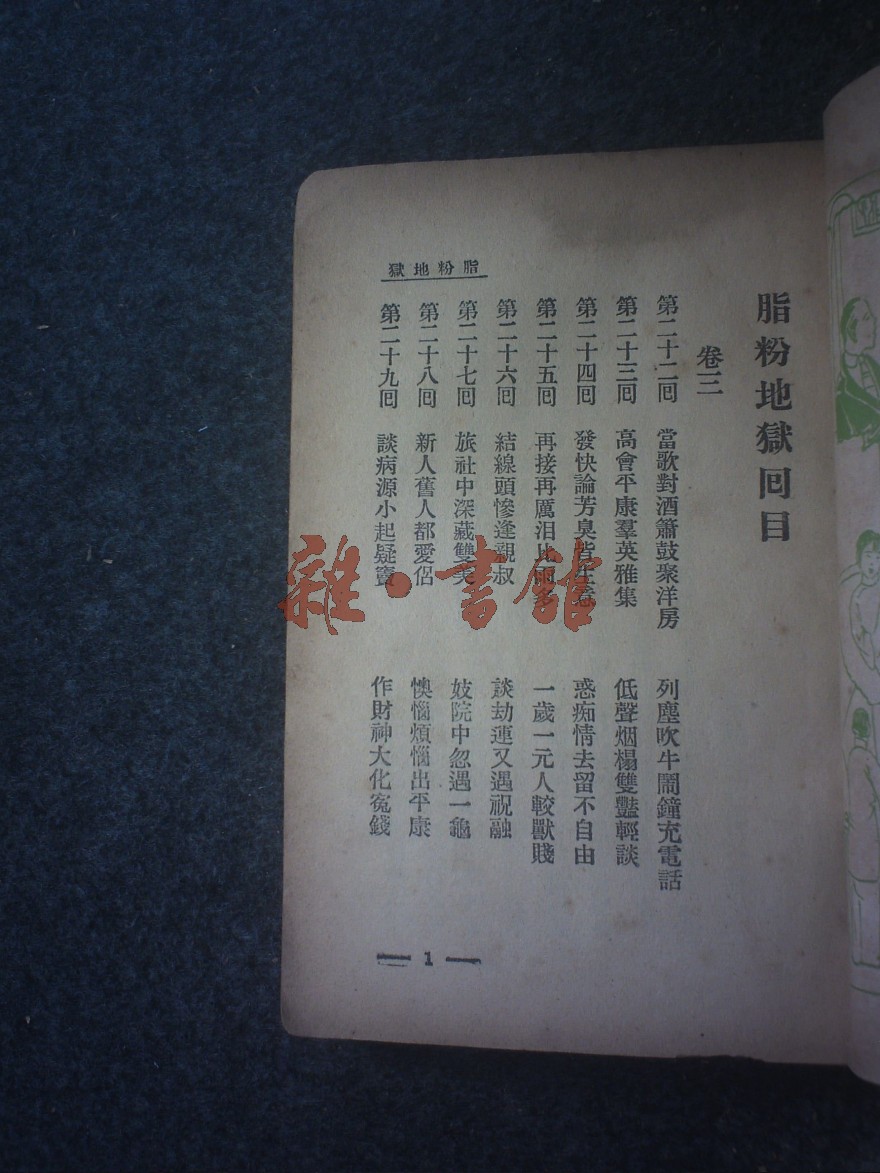 脂粉地獄回目
卷三
第二十二回 當歌對酒簫鼓聚洋房 列塵吹牛鬧鐘充電話
第二十三回 高會平康羣英雅集 低聲烟榻雙豔輕談
第二十四回 發快論芳臭皆生意 惑痴情去留不自由
第二十五回 再接再厲泪比雨多 一歲一元人較獸賤
第二十六回 結線頭慘逢親叔 談劫運又遇祝融
第二十七回 旅社中深藏雙美 妓院中忽遇一龜
第二十八回 新人舊人都愛侶 懊惱煩惱出平康
第二十九回 談病源小起疑竇 作財神大化冤錢
脂粉地獄
1
雜·書館